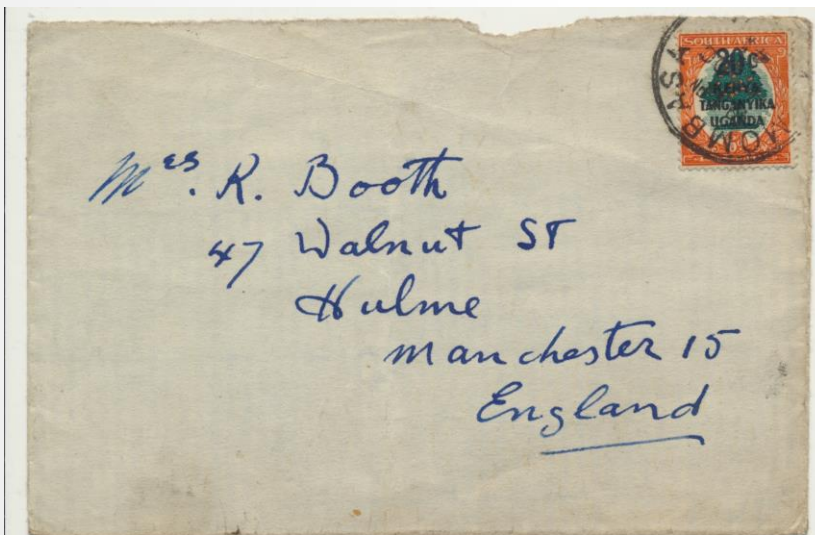 SOUTH AFRICA
20c
KENYA
TANGANYIKA
UGANDA
MOMBASA
Mrs. R. Booth
47 Walnut ST
Hulme
Manchester 15
England